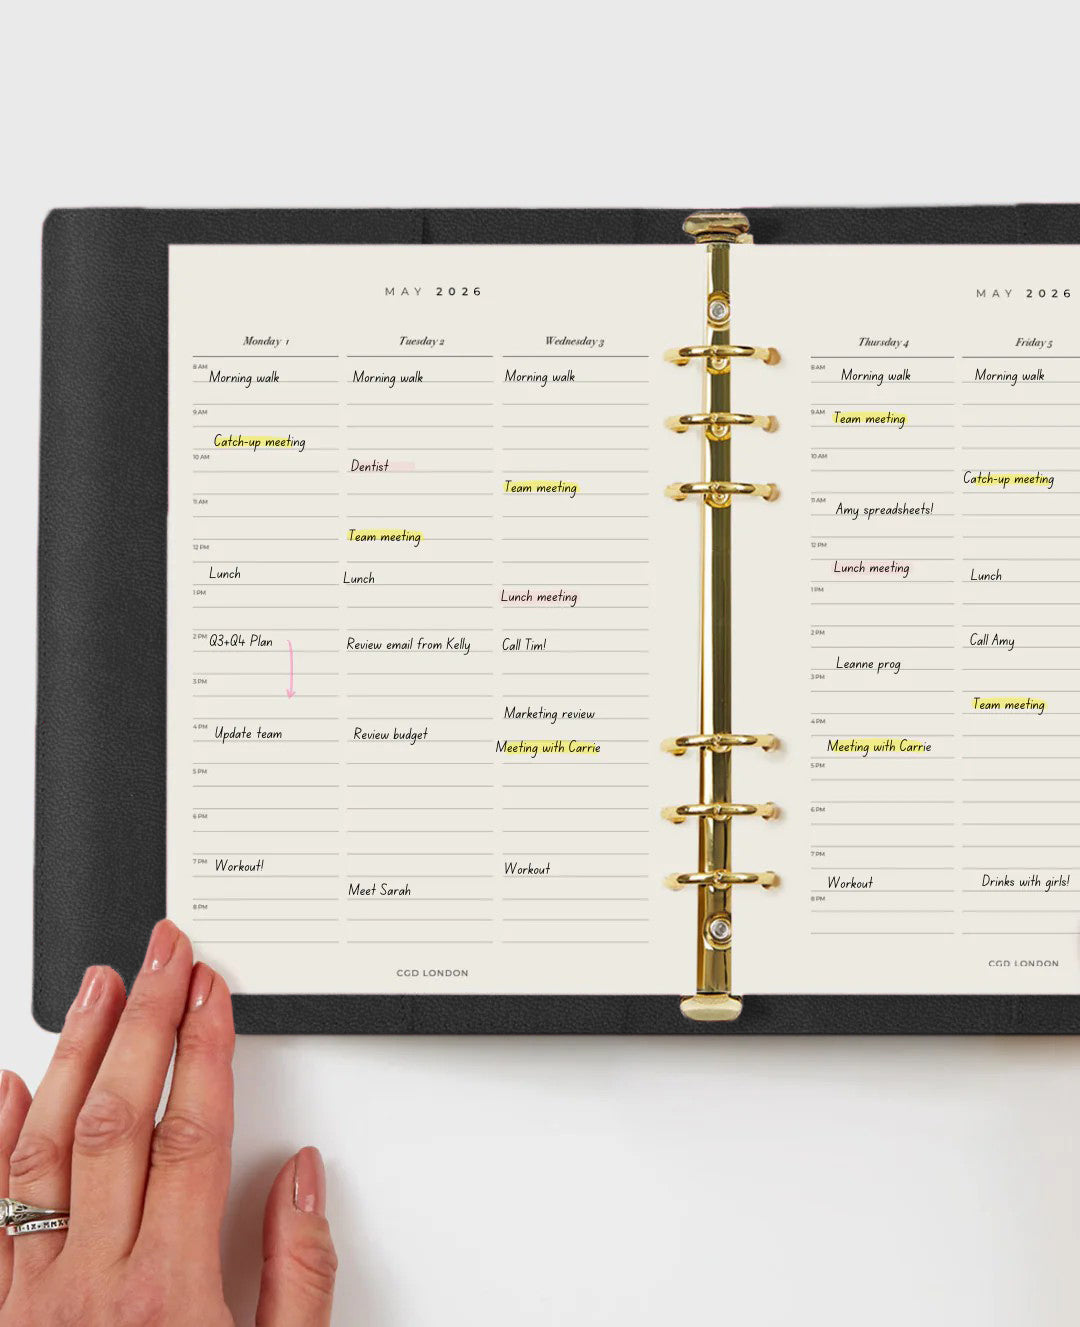 MAY 2026
Monday 1
8 AM
Morning walk
9 AM
Catch-up meeting
10 AM
11 AM
12 PM
Lunch
1 PM
2 PM Q3+Q4 Plan
3 PM
4 PM Update team
5 PM
6 PM
7 PM Workout!
8 PM
Tuesday 2
Morning walk
Dentist
Team meeting
Lunch
Review email from Kelly
Review budget
Meet Sarah
Wednesday 3
Morning walk
Team meeting
Lunch meeting
Call Tim!
Marketing review
Meeting with Carrie
Workout
CGD LONDON
MAY 2026
Thursday 4
8 AM
Morning walk
9 AM Team meeting
10 AM
11 AM
Amy spreadsheets!
12 PM
Lunch meeting
1 PM
2 PM
Leanne prog
3 PM
4 PM
Meeting with Carrie
5 PM
6 PM
7 PM
Workout
8 PM
Friday 5
Morning walk
Catch-up meeting
Lunch
Call Amy
Team meeting
Drinks with girls!
CGD LONDON